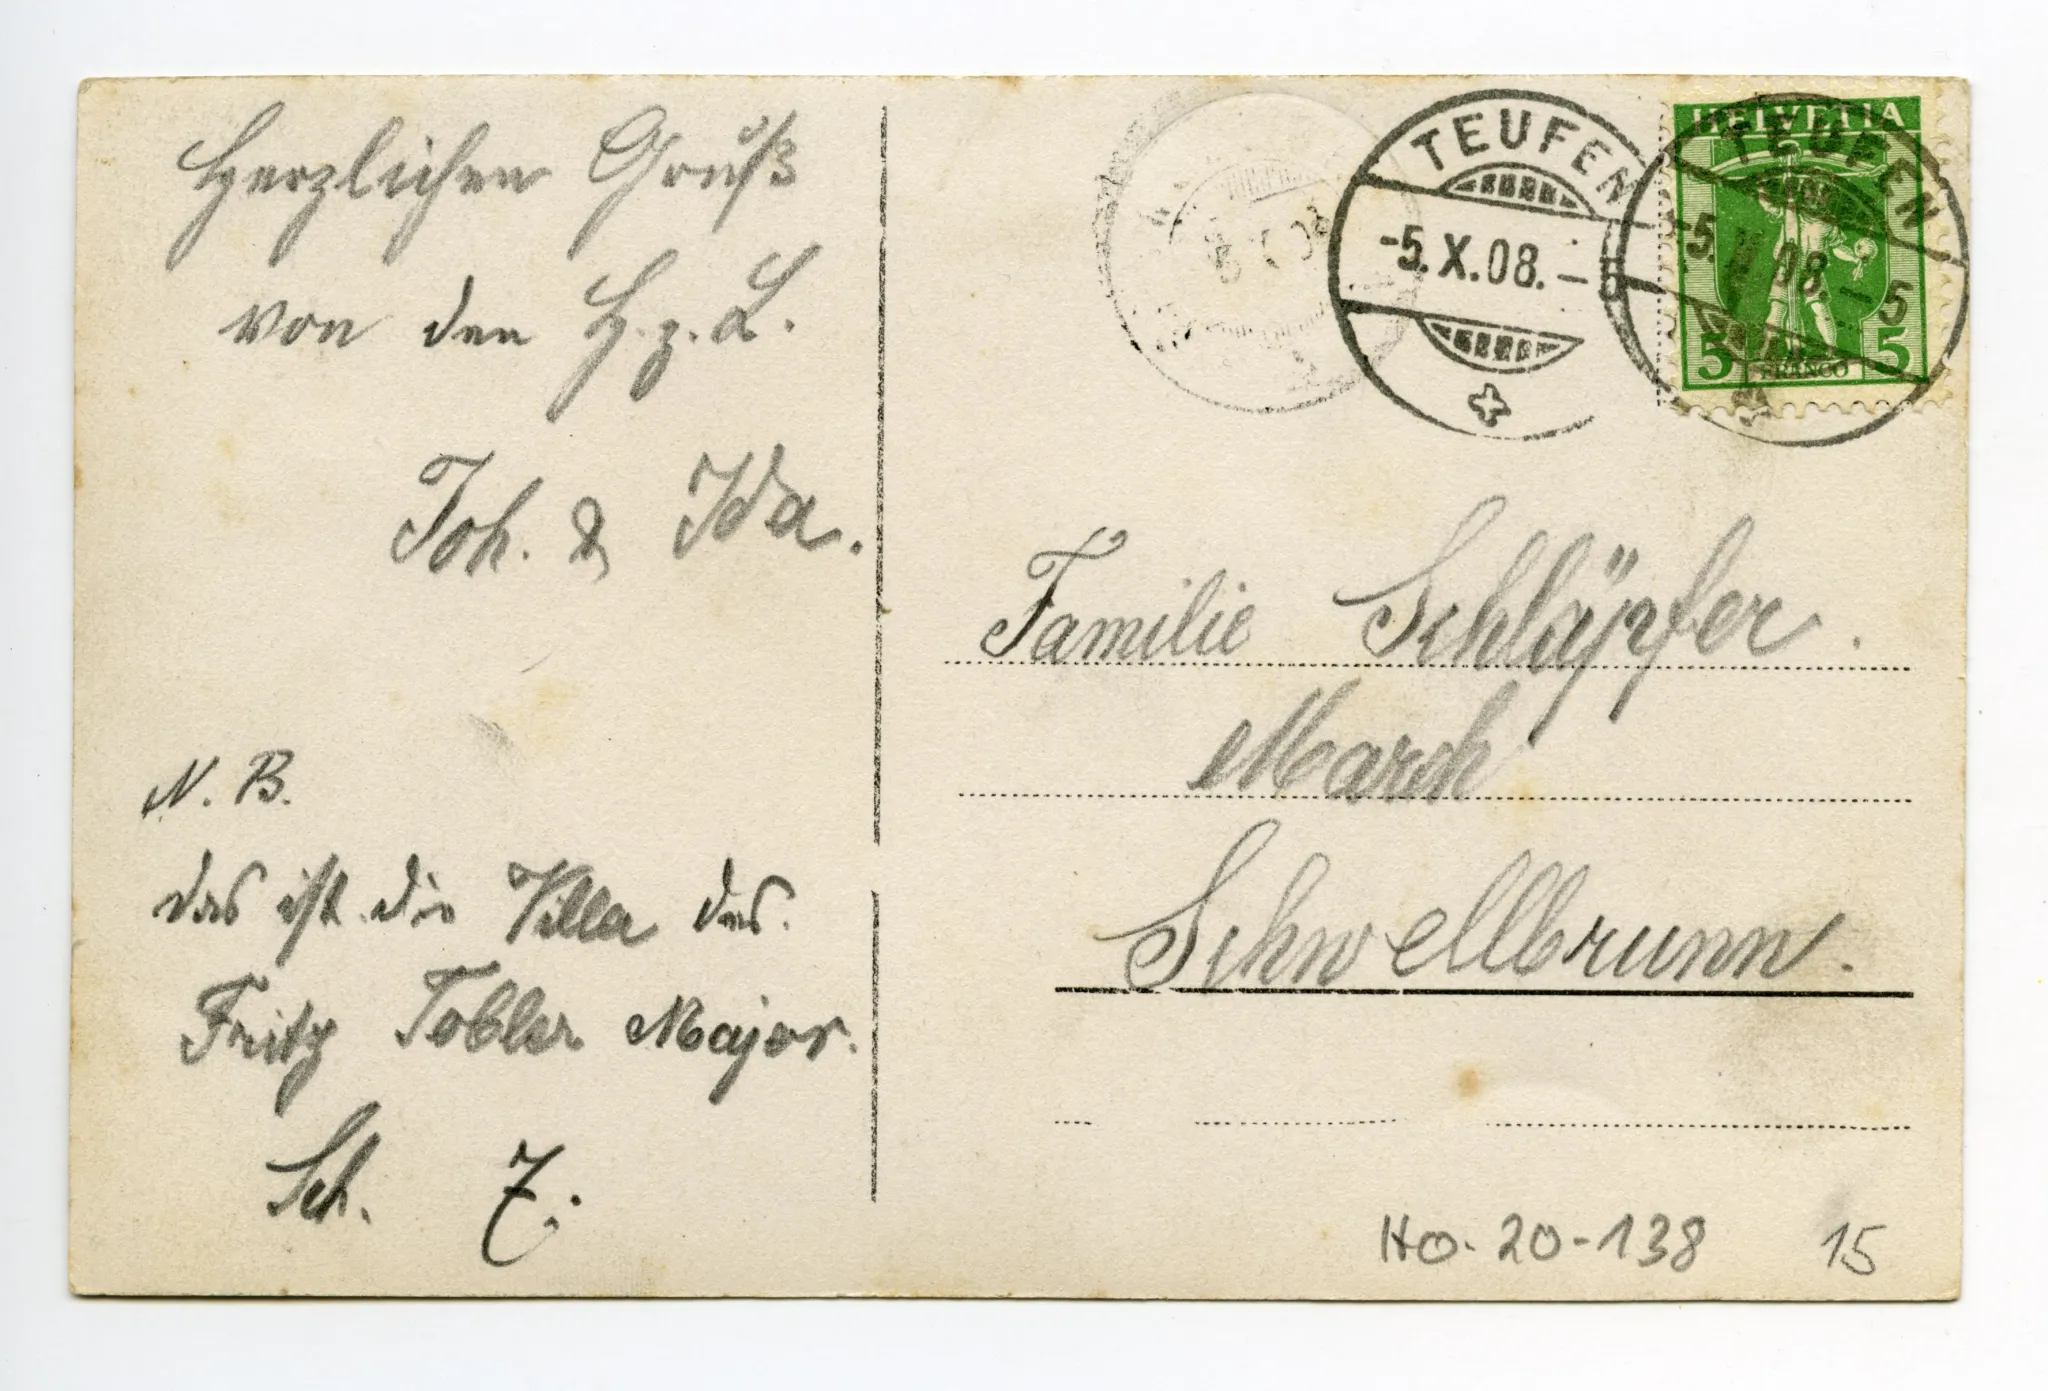 Herzlichen Gruß
von den H. z. L.
Joh. & Ida.
N. B.
das ist die Villa des.
Fritz Tobler Major.
Sch. Z.
TEUFEN
-5.X.08.-5
HELVETIA
TEUFEN
-5.X.08.-5
5 FRANCO 5
Familie Schläpfer.
March
Schwellbrunn.
HO-20-138 15